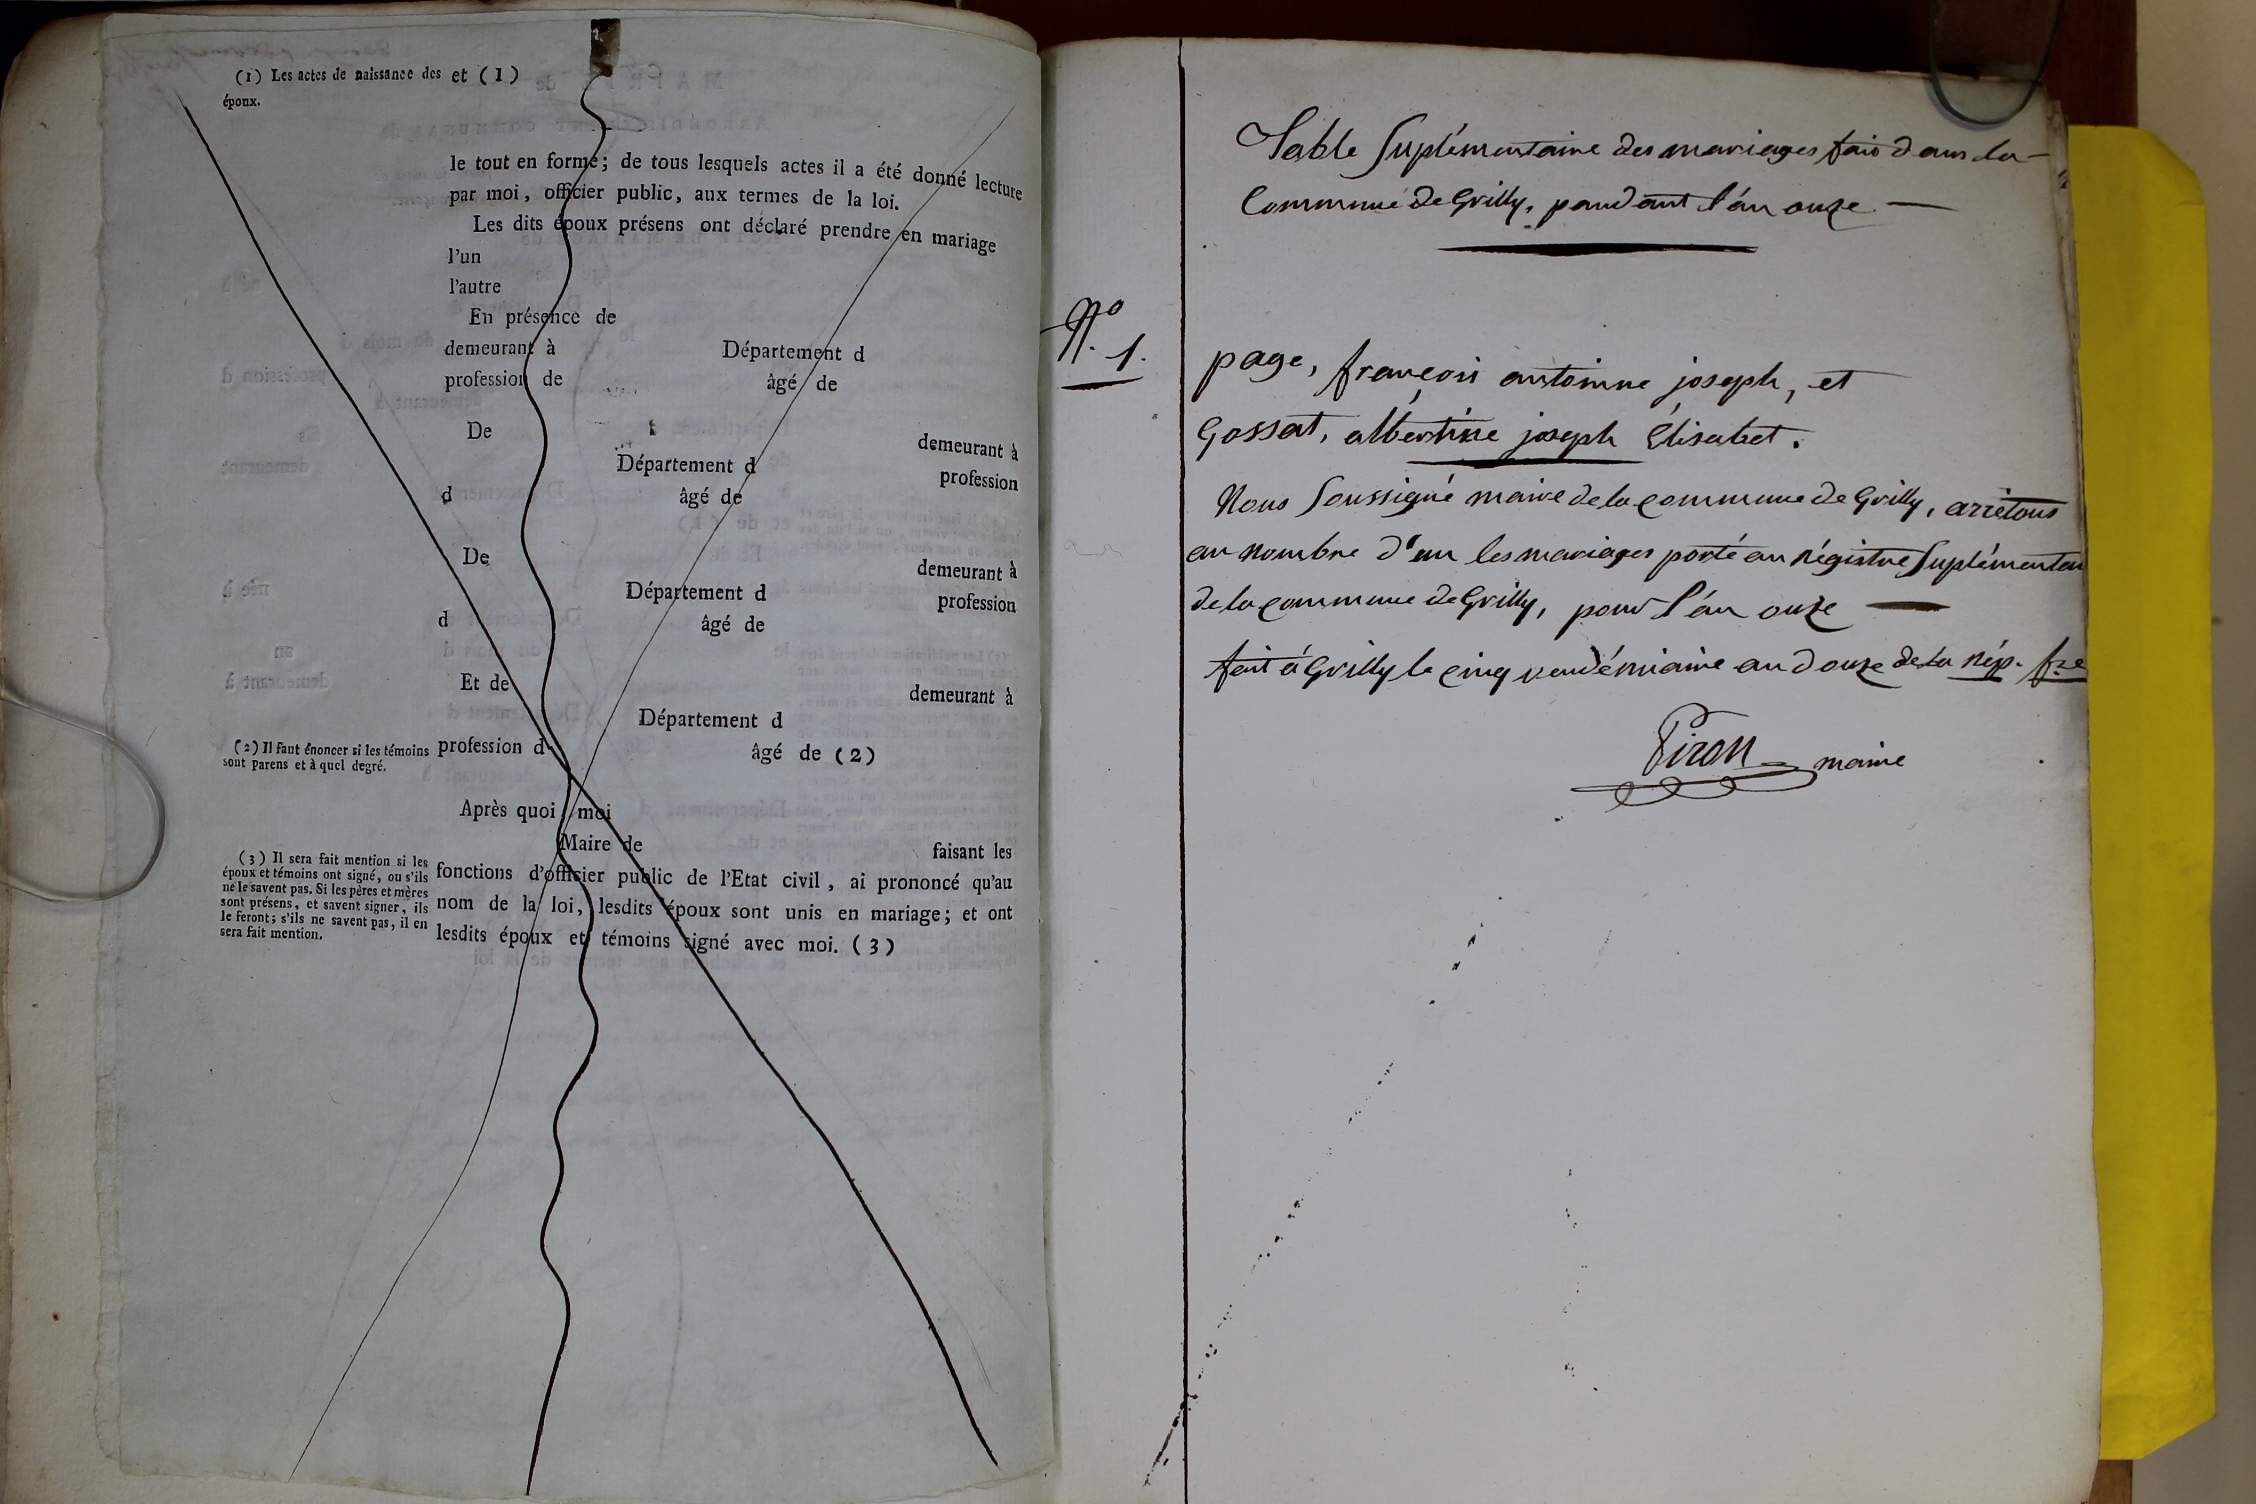 (1) Les actes de naissance des
époux.
et (1)
le tout en forme; de tous lesquels actes il a été donné lecture
par moi, officier public, aux termes de la loi.
Les dits époux présens ont déclaré prendre en mariage
l'un
l'autre
En présence de
demeurant à Département d
profession de âgé de
De demeurant à
Département d profession
d âgé de
De demeurant à
Département d profession
d âgé de
Et de demeurant à
Département d
profession d âgé de (2)
(2) Il faut énoncer si les témoins
sont parens et à quel degré.
Après quoi, moi
Maire de faisant les
fonctions d'officier public de l'Etat civil, ai prononcé qu'au
nom de la loi, lesdits époux sont unis en mariage; et ont
lesdits époux et témoins signé avec moi. (3)
(3) Il sera fait mention si les
époux et témoins ont signé, ou s'ils
ne le savent pas. Si les pères et mères
sont présens, et savent signer, ils
le feront; s'ils ne savent pas, il en
sera fait mention.
Table Suplémentaire des mariages fais dans la
Commune de Grilly, pandant l'an onze
No. 1.
page, françois antoinne joseph, et
Gossat, albertine joseph Élisabet.
Nous Soussigné maire de la commune de Grilly, arrétons
au nombre d'un les mariages porté au Régistre Suplémentai
de la commune de Grilly, pour l'an onze
fait à Grilly le cinq vendémiaire an douze de la Rép. fse
Piron maire